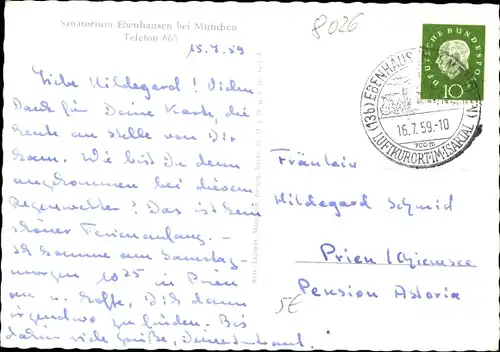 Sanatorium Ebenhausen bei München
Telefon 665
8026
15.7.59
Liebe Hildegard! Vielen
Dank für Deine Karte, die
heute an Stelle von Dir
kam. Wie bist Du denn
angekommen bei diesem
Regenwetter! Das ist kein
schöner Ferienanfang. -
Ich komme am Samstag-
morgen 10 25 in Prien
an u. hoffe, Dich dann
irgendwo zu finden. Bis
dahin viele Grüße, Deine
DEUTSCHE BUNDESPOST
10
(13b) EBENHAUSEN
16.7.59.-10
700 m
LUFTKURORT IM ISARTAL
Fräulein
Hildegard Schmid
Prien/Chiemsee
Pension Astoria
5€